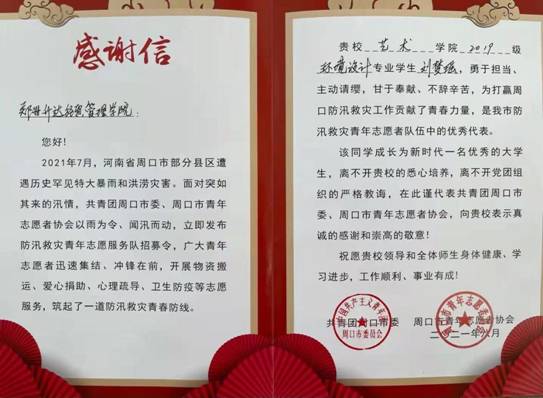 感谢信
郑州升达经贸管理学院：
您好！
2021年7月，河南省周口市部分县区遭
遇历史罕见特大暴雨和洪涝灾害。面对突如
其来的汛情，共青团周口市委、周口市青年
志愿者协会以雨为令、闻汛而动，立即发布
防汛救灾青年志愿服务队招募令，广大青年
志愿者迅速集结、冲锋在前，开展物资搬
运、爱心捐助、心理疏导、卫生防疫等志愿
服务，筑起了一道防汛救灾青春防线。
贵校艺术学院2019级
环境设计专业学生刘梦瑶，勇于担当、
主动请缨，甘于奉献、不辞辛苦，为打赢
周口防汛救灾工作贡献了青春力量，是我市防
汛救灾青年志愿者队伍中的优秀代表。
该同学成长为新时代一名优秀的大学
生，离不开贵校的悉心培养，离不开党团
组织的严格教诲，在此谨代表共青团周口市
委、周口市青年志愿者协会，向贵校表示真
诚的感谢和崇高的敬意！
祝愿贵校领导和全体师生身体健康、学
习进步，工作顺利、事业有成！
共青团周口市委 周口市青年志愿者协会
二〇二一年八月
中国共产主义青年团
周口市委员会